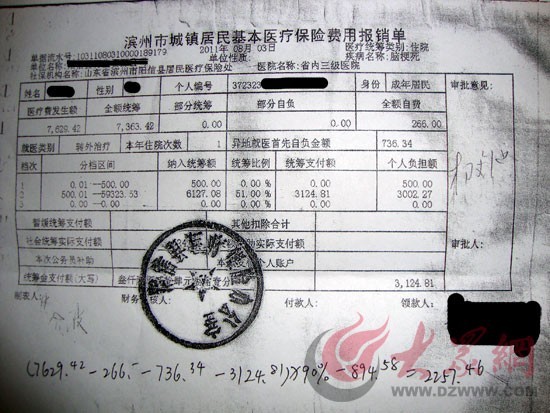 滨州市城镇居民基本医疗保险费用报销单
单据流水号:1031108031000189179 2011年 08月 03日 医疗统筹类别:住院
单位名称: 单位性质: 疾病名称:脑梗死
社保机构名称:山东省滨州市阳信县居民医疗保险处 医院名称:省内三级医院
姓名 性别 个人编号 372323 身份 成年居民 审批意见:
医疗费发生额 全额统筹 部分统筹 部分自负 全自费
7,629.42 7,363.42 0.00 0.00 266.00
就医类别 转外治疗 本年住院次数 1 异地就医首先自负金额 736.34
档次 分档区间 纳入统筹额 统筹比例 统筹支付额 个人负担额
1 0.01 --500.00 500.00 0.00 % 0.00 500.00
2 500.01 --59323.53 6127.08 51.00 % 3124.81 3002.27
3 0.00 --0.00 0.00 0.00 % 0.00 0.00
暂缓统筹支付额 其他扣除合计
社会统筹实际支付额 实际支付额
本次公务员补助 个人账户 审批人:
统筹金支付额(大写) 3,124.81
制表人: 财务 核人: 付款人: 领款人:
(7629.42-266.-736.34-3124.81)×90%-894.58=2257.46
大众网
WWW.DZWWW.COM